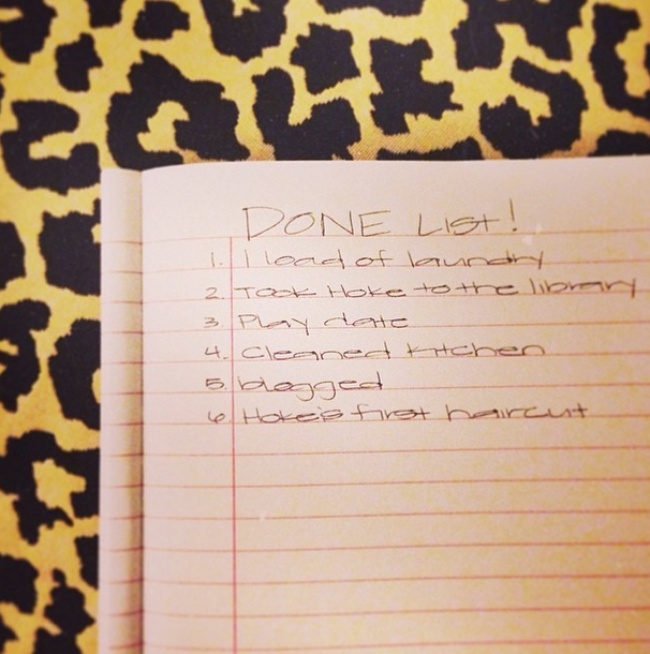 DONE List!
1. 1 load of laundry
2. Took Hoke to the library
3. Play date
4. Cleaned kitchen
5. blogged
6. Hoke's first haircut